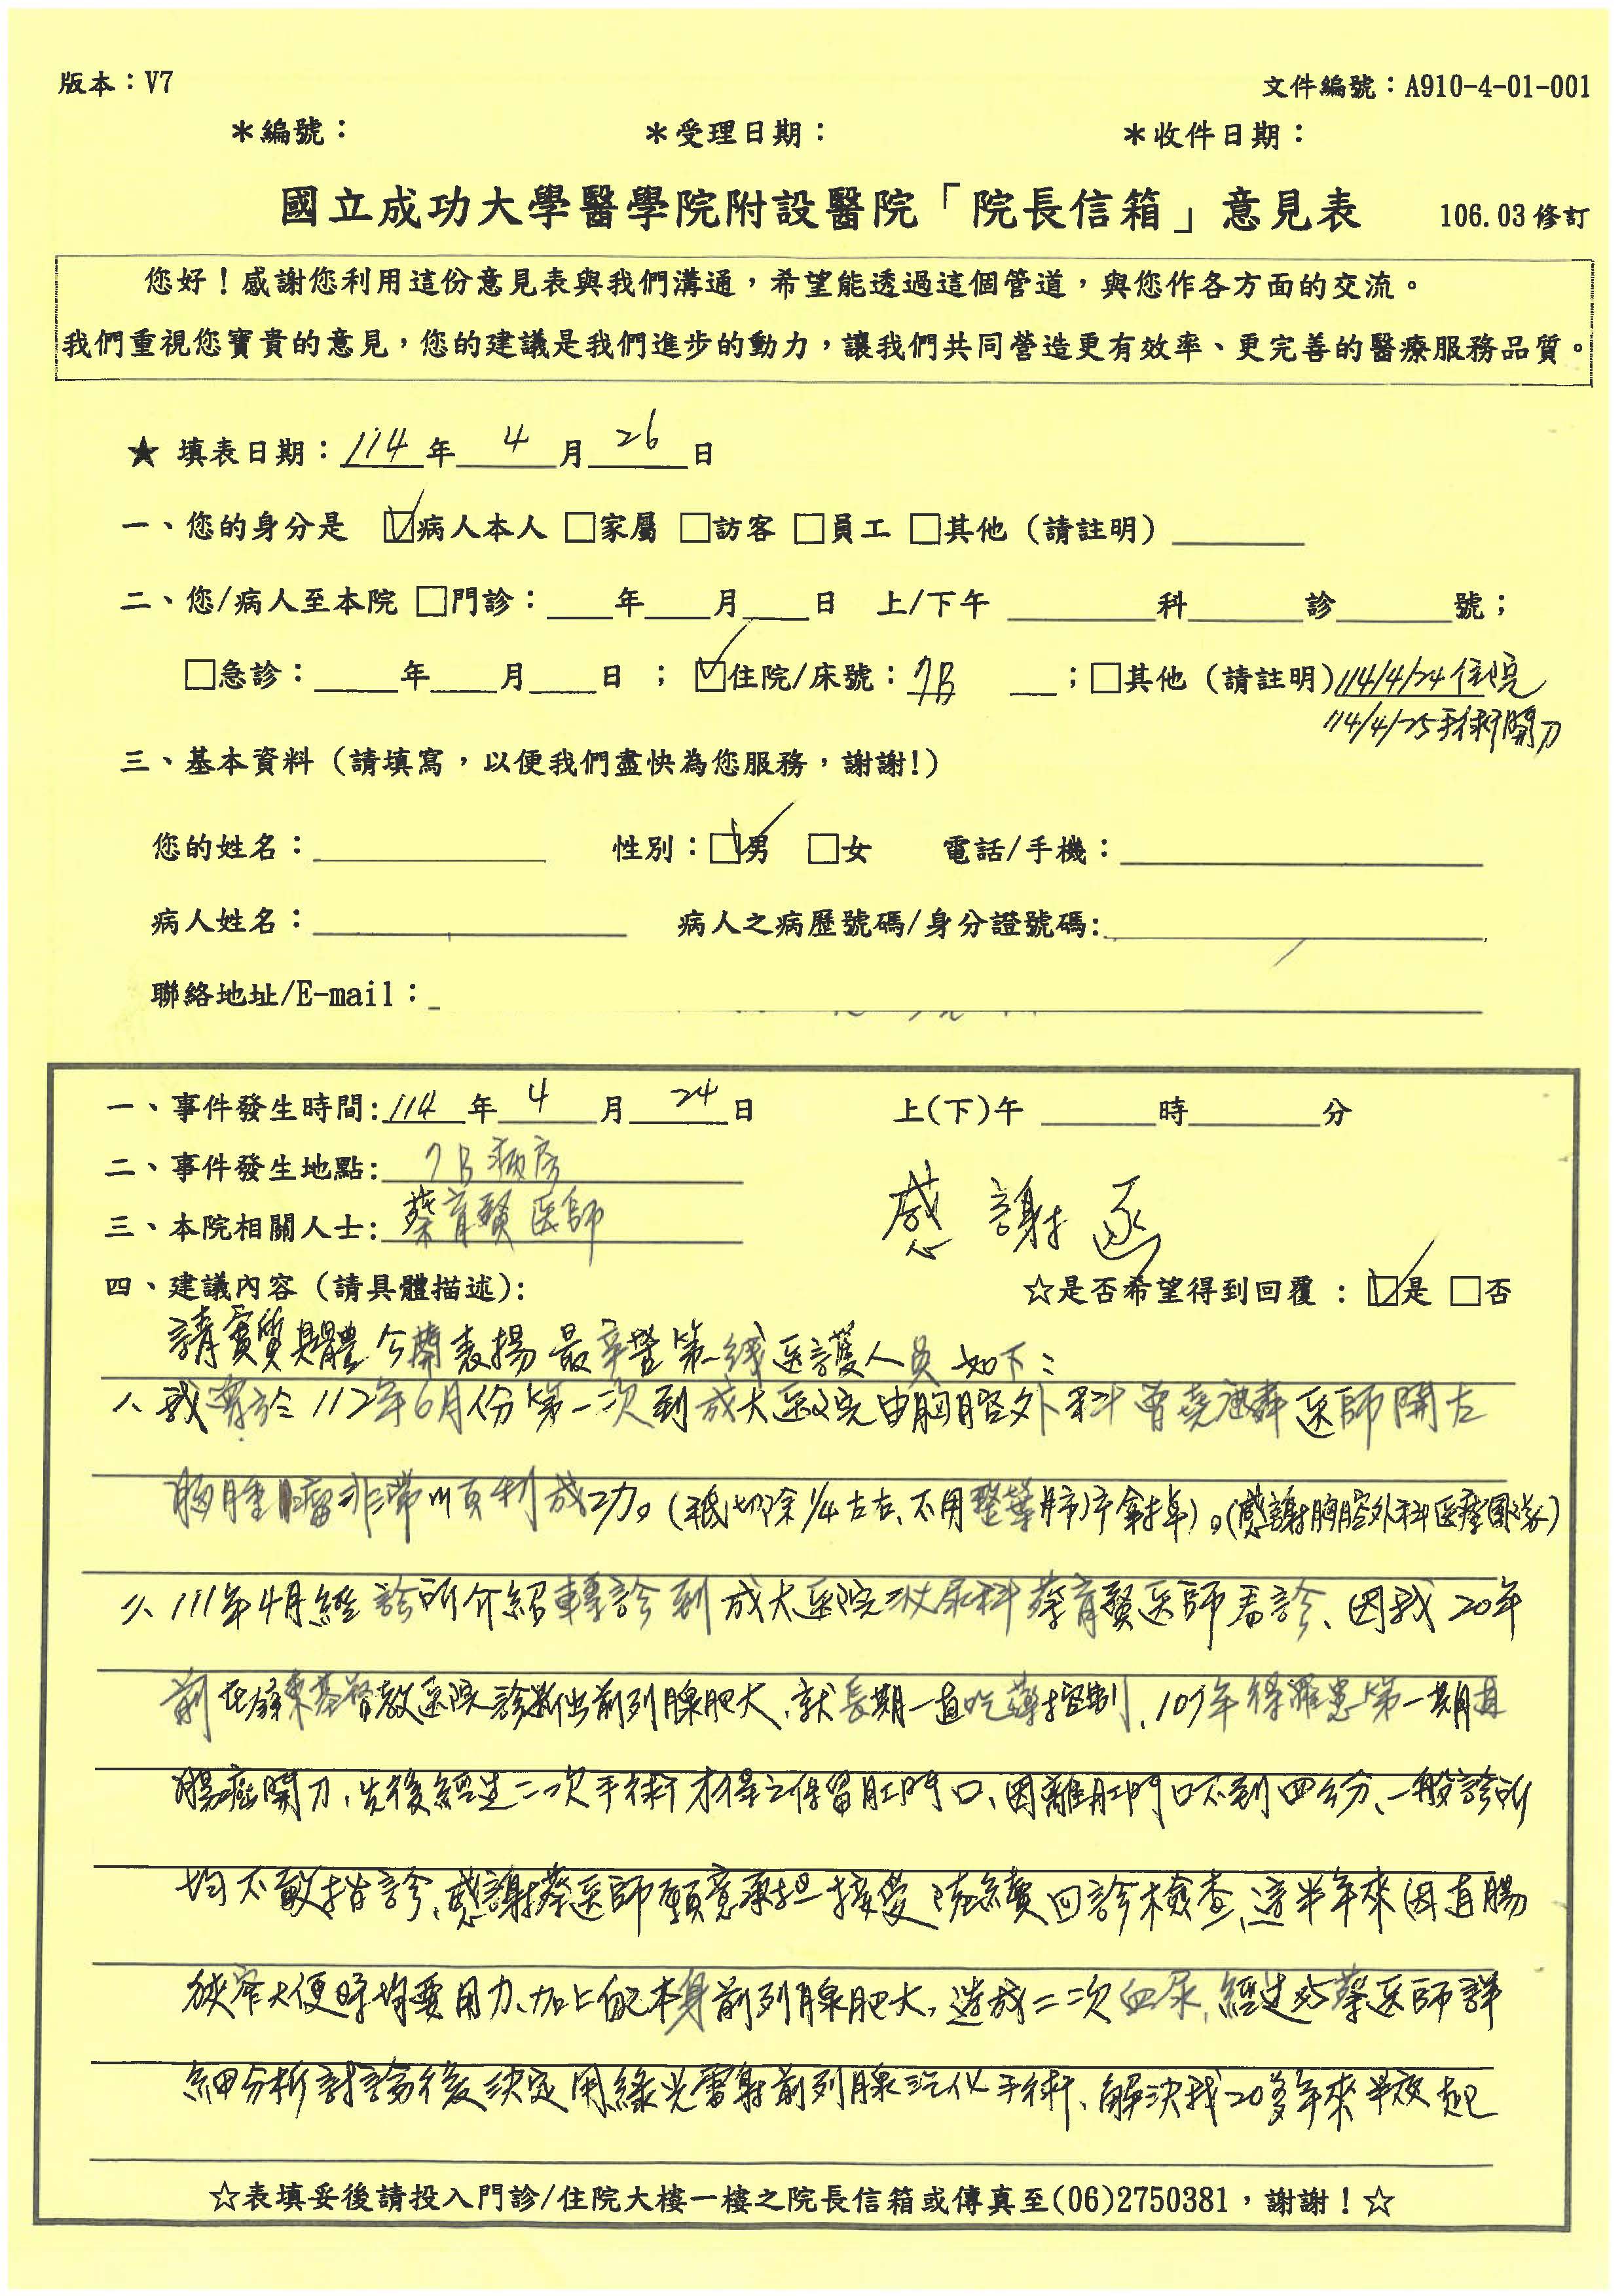 版本：V7
文件編號：A910-4-01-001
＊編號： ＊受理日期： ＊收件日期：
國立成功大學醫學院附設醫院「院長信箱」意見表 106.03修訂
您好！感謝您利用這份意見表與我們溝通，希望能透過這個管道，與您作各方面的交流。
我們重視您寶貴的意見，您的建議是我們進步的動力，讓我們共同營造更有效率、更完善的醫療服務品質。
★ 填表日期：114年 4 月 26 日
一、您的身分是 ☑病人本人 □家屬 □訪客 □員工 □其他（請註明）
二、您/病人至本院 □門診： 年 月 日 上/下午 科 診 號；
□急診： 年 月 日 ； ☑住院/床號：7B ；□其他（請註明）114/4/24住院
114/4/25手術開刀
三、基本資料（請填寫，以便我們盡快為您服務，謝謝!）
您的姓名： 性別：☑男 □女 電話/手機：
病人姓名： 病人之病歷號碼/身分證號碼:
聯絡地址/E-mail：
一、事件發生時間:114 年 4 月 24 日 上(下)午 時 分
二、事件發生地點: 7B病房
三、本院相關人士: 蔡育賢医師
感謝函
四、建議內容（請具體描述）： ☆是否希望得到回覆 ：☑是 □否
請實質具體公開表揚最辛勞第一線医護人員如下：
1、我 於112年6月份第一次到成大医院由胸腔外科曾堯麟医師開左
胸腫瘤非常順利成功。(祇切除1/4左右、不用整葉肺部拿掉)。(感謝胸腔外科医療團隊)
2、111年4月經診所介紹轉診到成大医院泌尿科蔡育賢医師看診、因我20年
前在 東基督教医院診斷出前列腺肥大、就長期一直吃藥控制、109年 罹患第一期直
腸癌開刀、先後經過二次手術才得之保留肛門口、因離肛門口不到四公分、一般診所
均不敢指診、感謝蔡医師願意承担接受陸續回診檢查、這半年來因直腸
狹窄大便時均要用力、加上自己本身前列腺肥大、造成二次血尿、經過與蔡医師詳
細分析討論後決定用綠光雷射前列腺汽化手術、解決我20多年來半夜起
☆表填妥後請投入門診/住院大樓一樓之院長信箱或傳真至(06)2750381，謝謝！☆